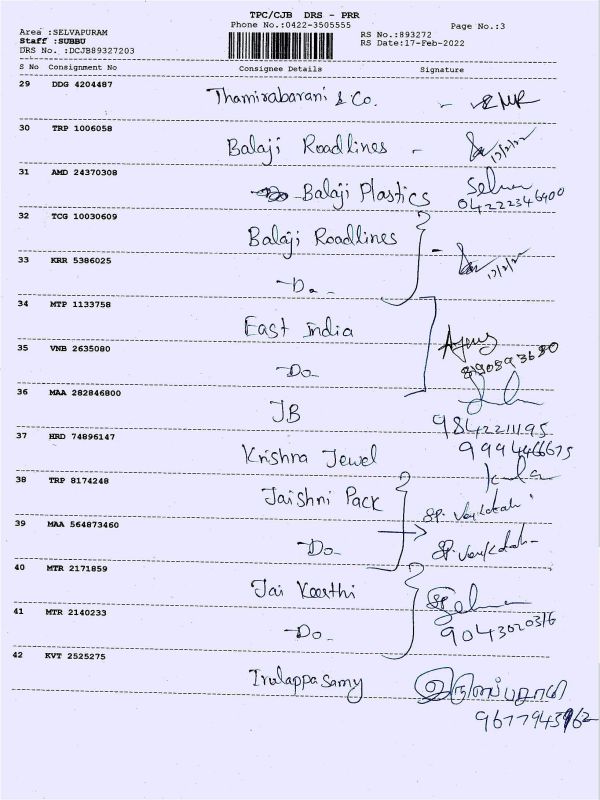 TPC/CJB DRS - PRR
Phone No.:0422-3505555
Page No.:3
Area :SELVAPURAM
Staff :SUBBU
DRS No. :DCJB89327203
RS No.:893272
RS Date:17-Feb-2022
S No Consignment No Consignee Details Signature
29 DDG 4204487 Thamirabarani & Co. -
30 TRP 1006058 Balaji Roadlines - 17/2/22
31 AMD 24370308 Balaji Plastics Selva
04222346900
32 TCG 10030609 Balaji Roadlines
33 KRR 5386025 -Do- 17/2/22
34 MTP 1133758 East india
35 VNB 2635080 -Do-
36 MAA 282846800 JB
9842211195
37 HRD 74896147 Krishna Jewel 9994466675
38 TRP 8174248 Jaishni Pack
39 MAA 564873460 Do-
40 MTR 2171859 Jai Keerthi
41 MTR 2140233 -Do- 9043020316
42 KVT 2525275 Irulappasamy